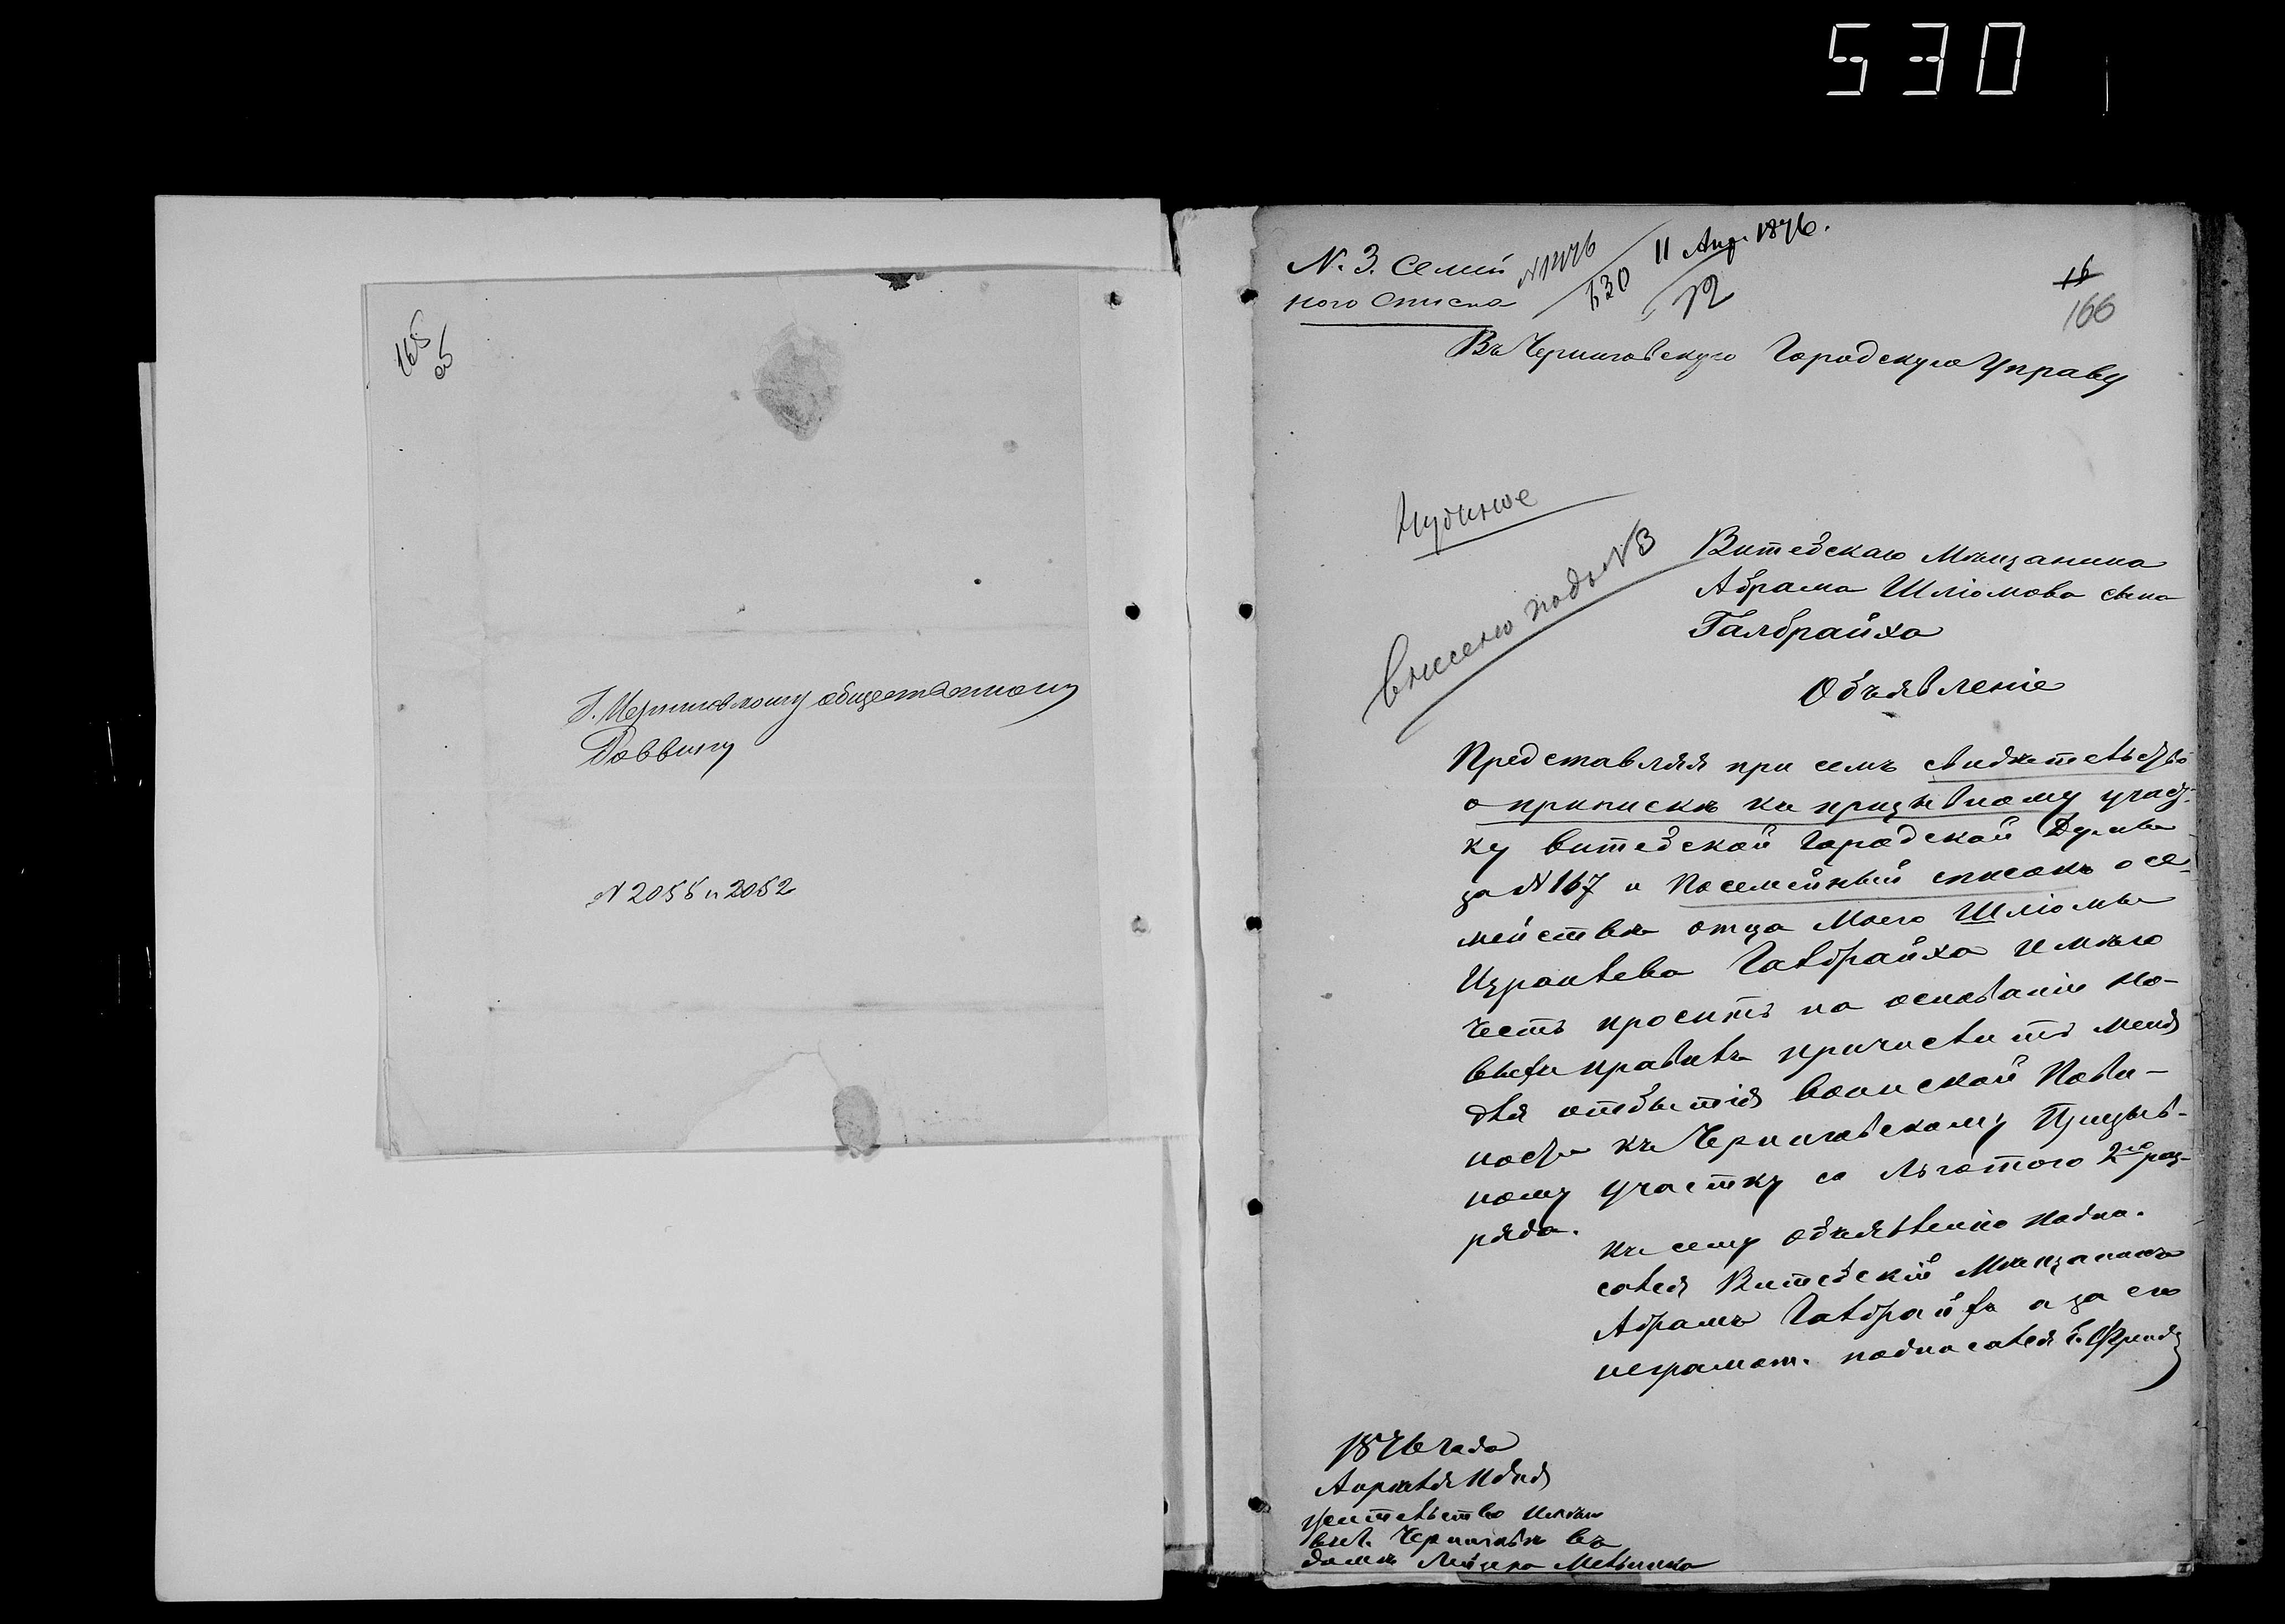 530
165
об
Г. Черниговскому общественному
Раввину
N 2055 и 2052
N. 3. Семей
ного Списка
11 Апр. 1876.
530
12
16
166
Въ Черниговскую Городскую Управу
Внесено подъ N 3
Витебскаго Мѣщанина
Абрама Шліомова сына
Галбрайха
Объявленіе
Представляя при семъ свидѣтельство
о припискѣ къ призывному участ-
ку Витебской Городской Думы
за N 167 и Посемейный списокъ о се-
мействѣ отца Моего Шліомы
Израилева Галбрайха Имѣю
честь просить на основаніи Но-
выхъ правилъ причислить меня
для отбытія воинской Повин-
ности къ Черниговскому Призыв-
ному участку со льготого 2го раз-
ряда.
Къ сему объявленію подпи-
сался Витебскій Мѣщанинъ
Абрамъ Галбрайхъ а за его
неграмот. подписался
1876 года
Апрѣля 11 дня
жительство имѣю
въ г. Черниговѣ въ
домѣ Лейзера Мельника